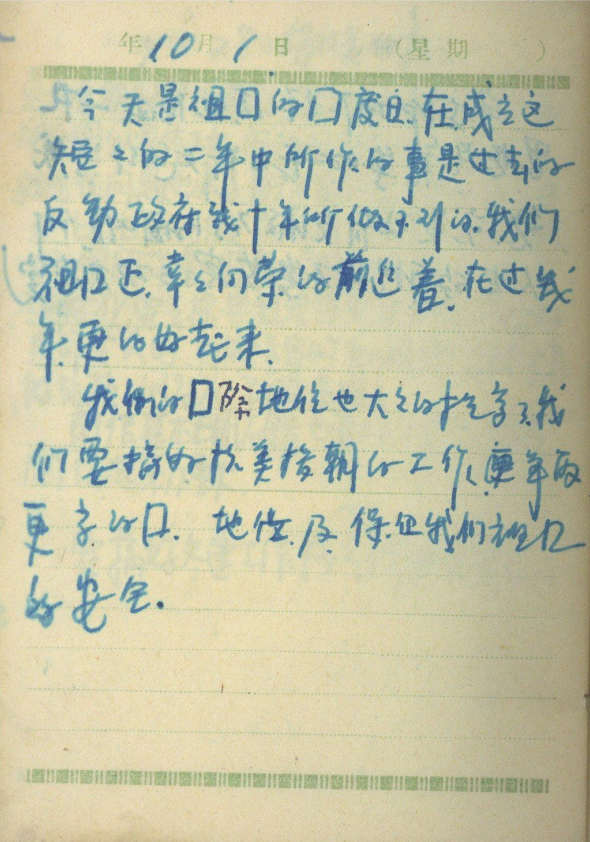 年10月1日 (星期 )
今天是祖囗的囗庆日.在成立这
短々的二年中所作的事是过去的
反动政府几十年所做不到的.我们
祖囗正.幸々向荣的前进着.在过几
年.更的好起来.
我们的囗际地位也大々的提高了.我
们要搞好抗美援朝的工作.更争取
更高的囗.地位.及.保证我们祖囗
的安全.